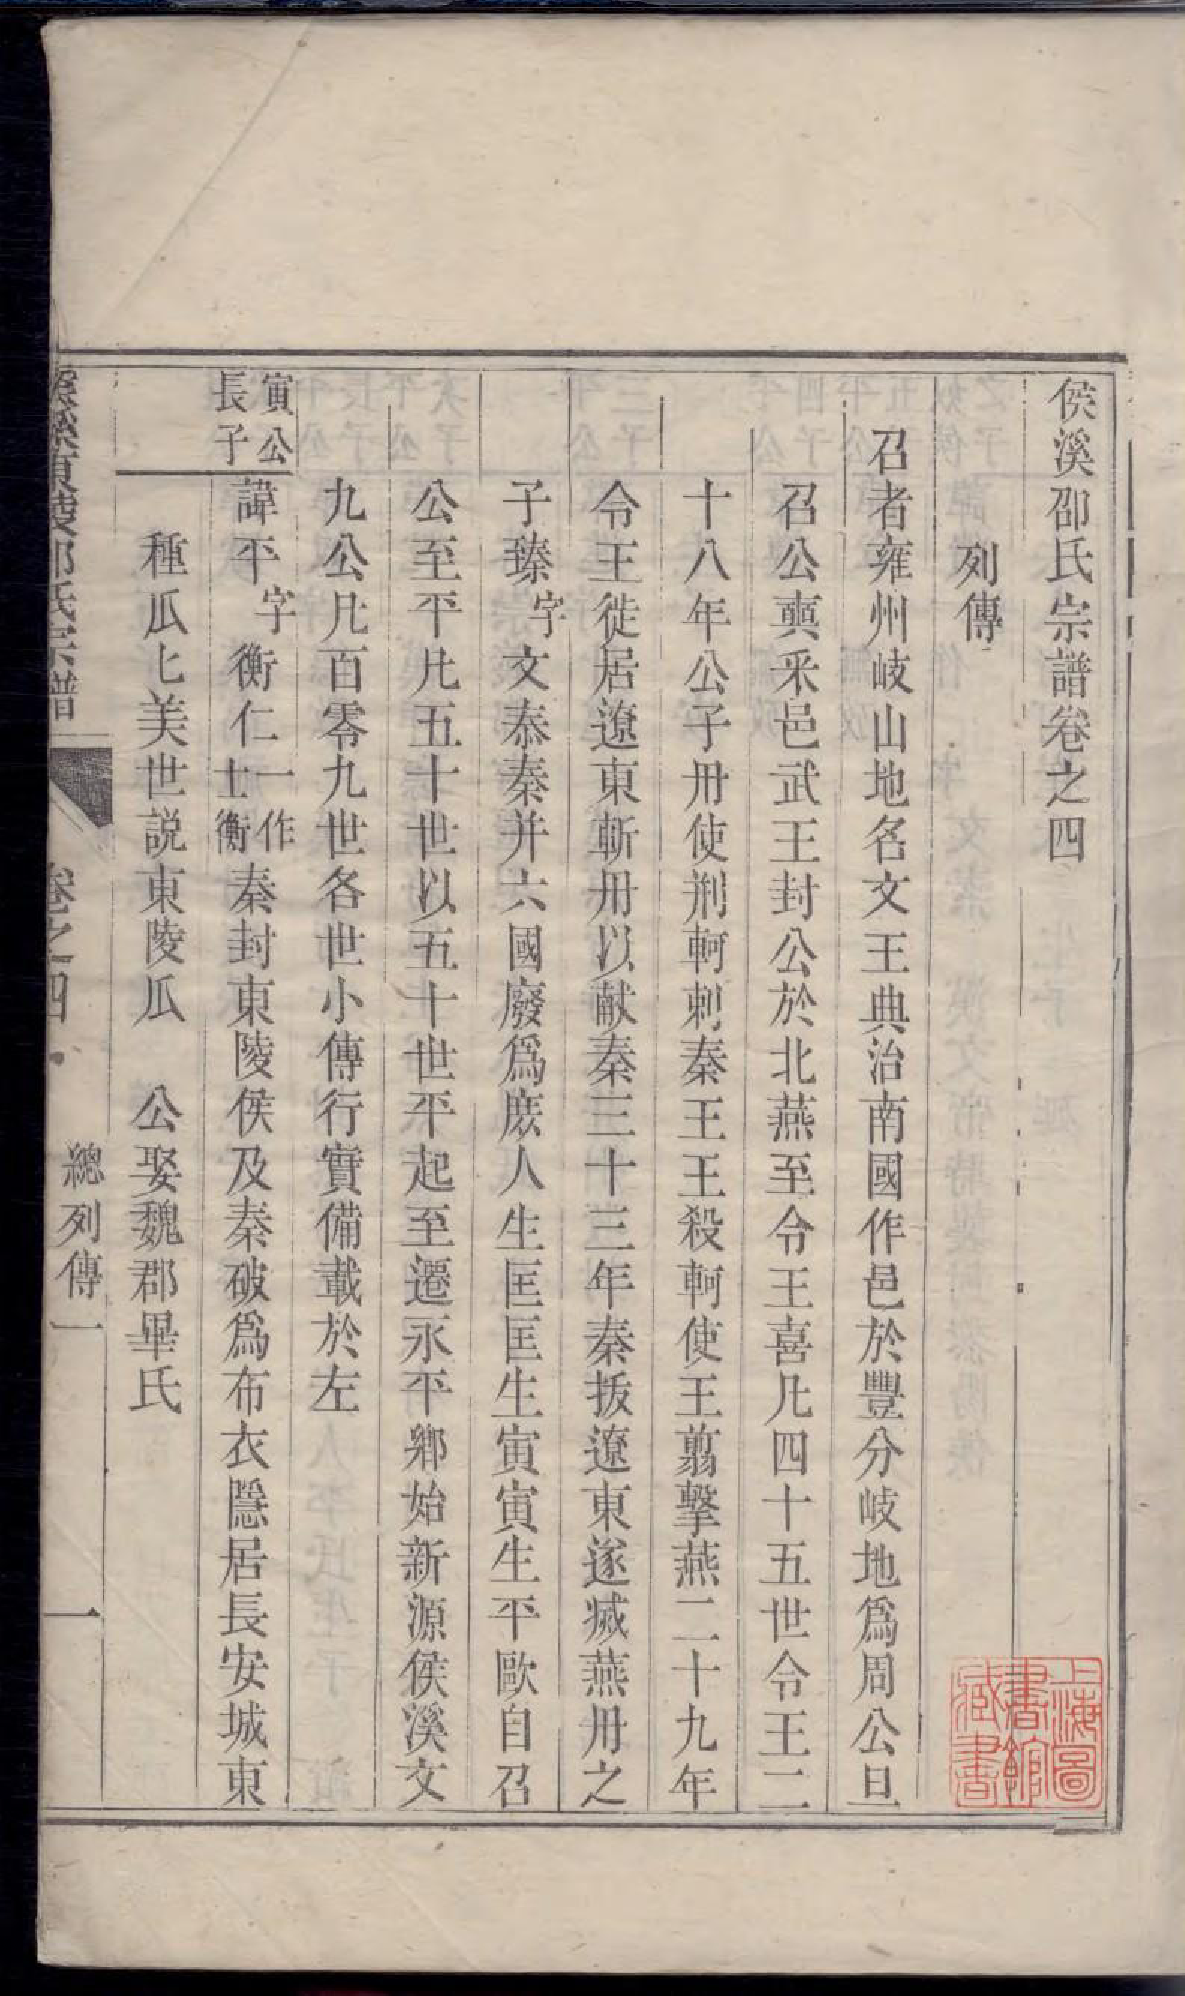 侯溪邵氏宗譜卷之四
列傳
召者雍州岐山地名文王典治南國作邑於豐分岐地爲周公旦
召公奭采邑武王封公於北燕至令王喜凢四十五世令王二
十八年公子丹使荆軻刺秦王王殺軻使王翦擊燕二十九年
令王徙居遼東斬丹以献秦三十三年秦拔遼東遂滅燕丹之
子瑧字文泰秦并六國廢爲庶人生匡匡生寅寅生平歐自召
公至平凢五十世以五十世平起至遷永平鄉始新源侯溪文
九公凢百零九世各世小傳行實備載於左
寅公
長子
諱平字衡仁一作士衡秦封東陵侯及秦破爲布衣隱居長安城東
種瓜七美世説東陵瓜 公娶魏郡畢氏
東陵邵氏宗譜
卷之四
總列傳一
一
上海圖書館藏書